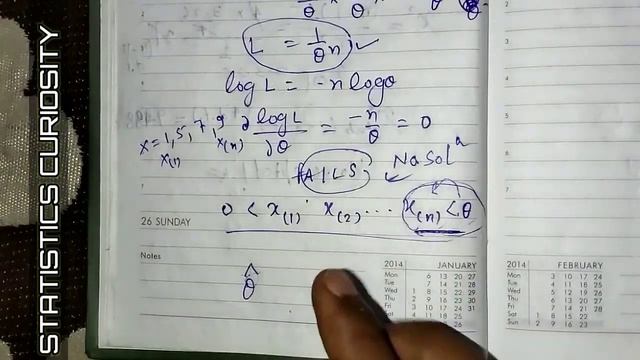 STATISTICS CURIOSITY
L = 1/θn ✓
log L = -n logθ
∂ log L / ∂θ = -n/θ = 0
x = 1, 5, 7, 9
x(1) x(n)
FAILS No Solⁿ
0 < x(1) x(2) ... x(n) < θ
26 SUNDAY
Notes
θ̂
2014 JANUARY
Mon 6 13 20 27
Tue 7 14 21 28
Wed 1 8 15 22 29
Thu 2 9 16 23 30
Fri 3 10 17 24 31
Sat 4 11 18 25
26
2014 FEBRUARY
Mon 3 10 17 24
Tue 4 11 18 25
Wed 5 12 19 26
Thu 6 13 20 27
Fri 7 14 21 28
Sat 1 8 15 22
Sun 2 9 16 23